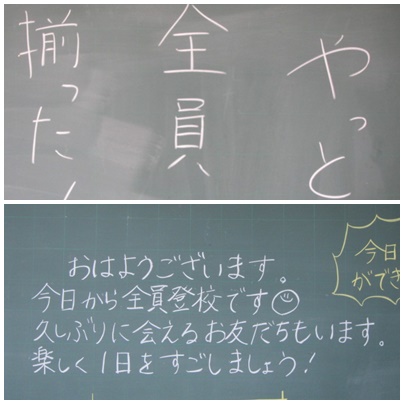 やっと
全員
揃った！
おはようございます。
今日から全員登校です☺
久しぶりに会えるお友だちもいます。
楽しく1日をすごしましょう！
今日
ができ